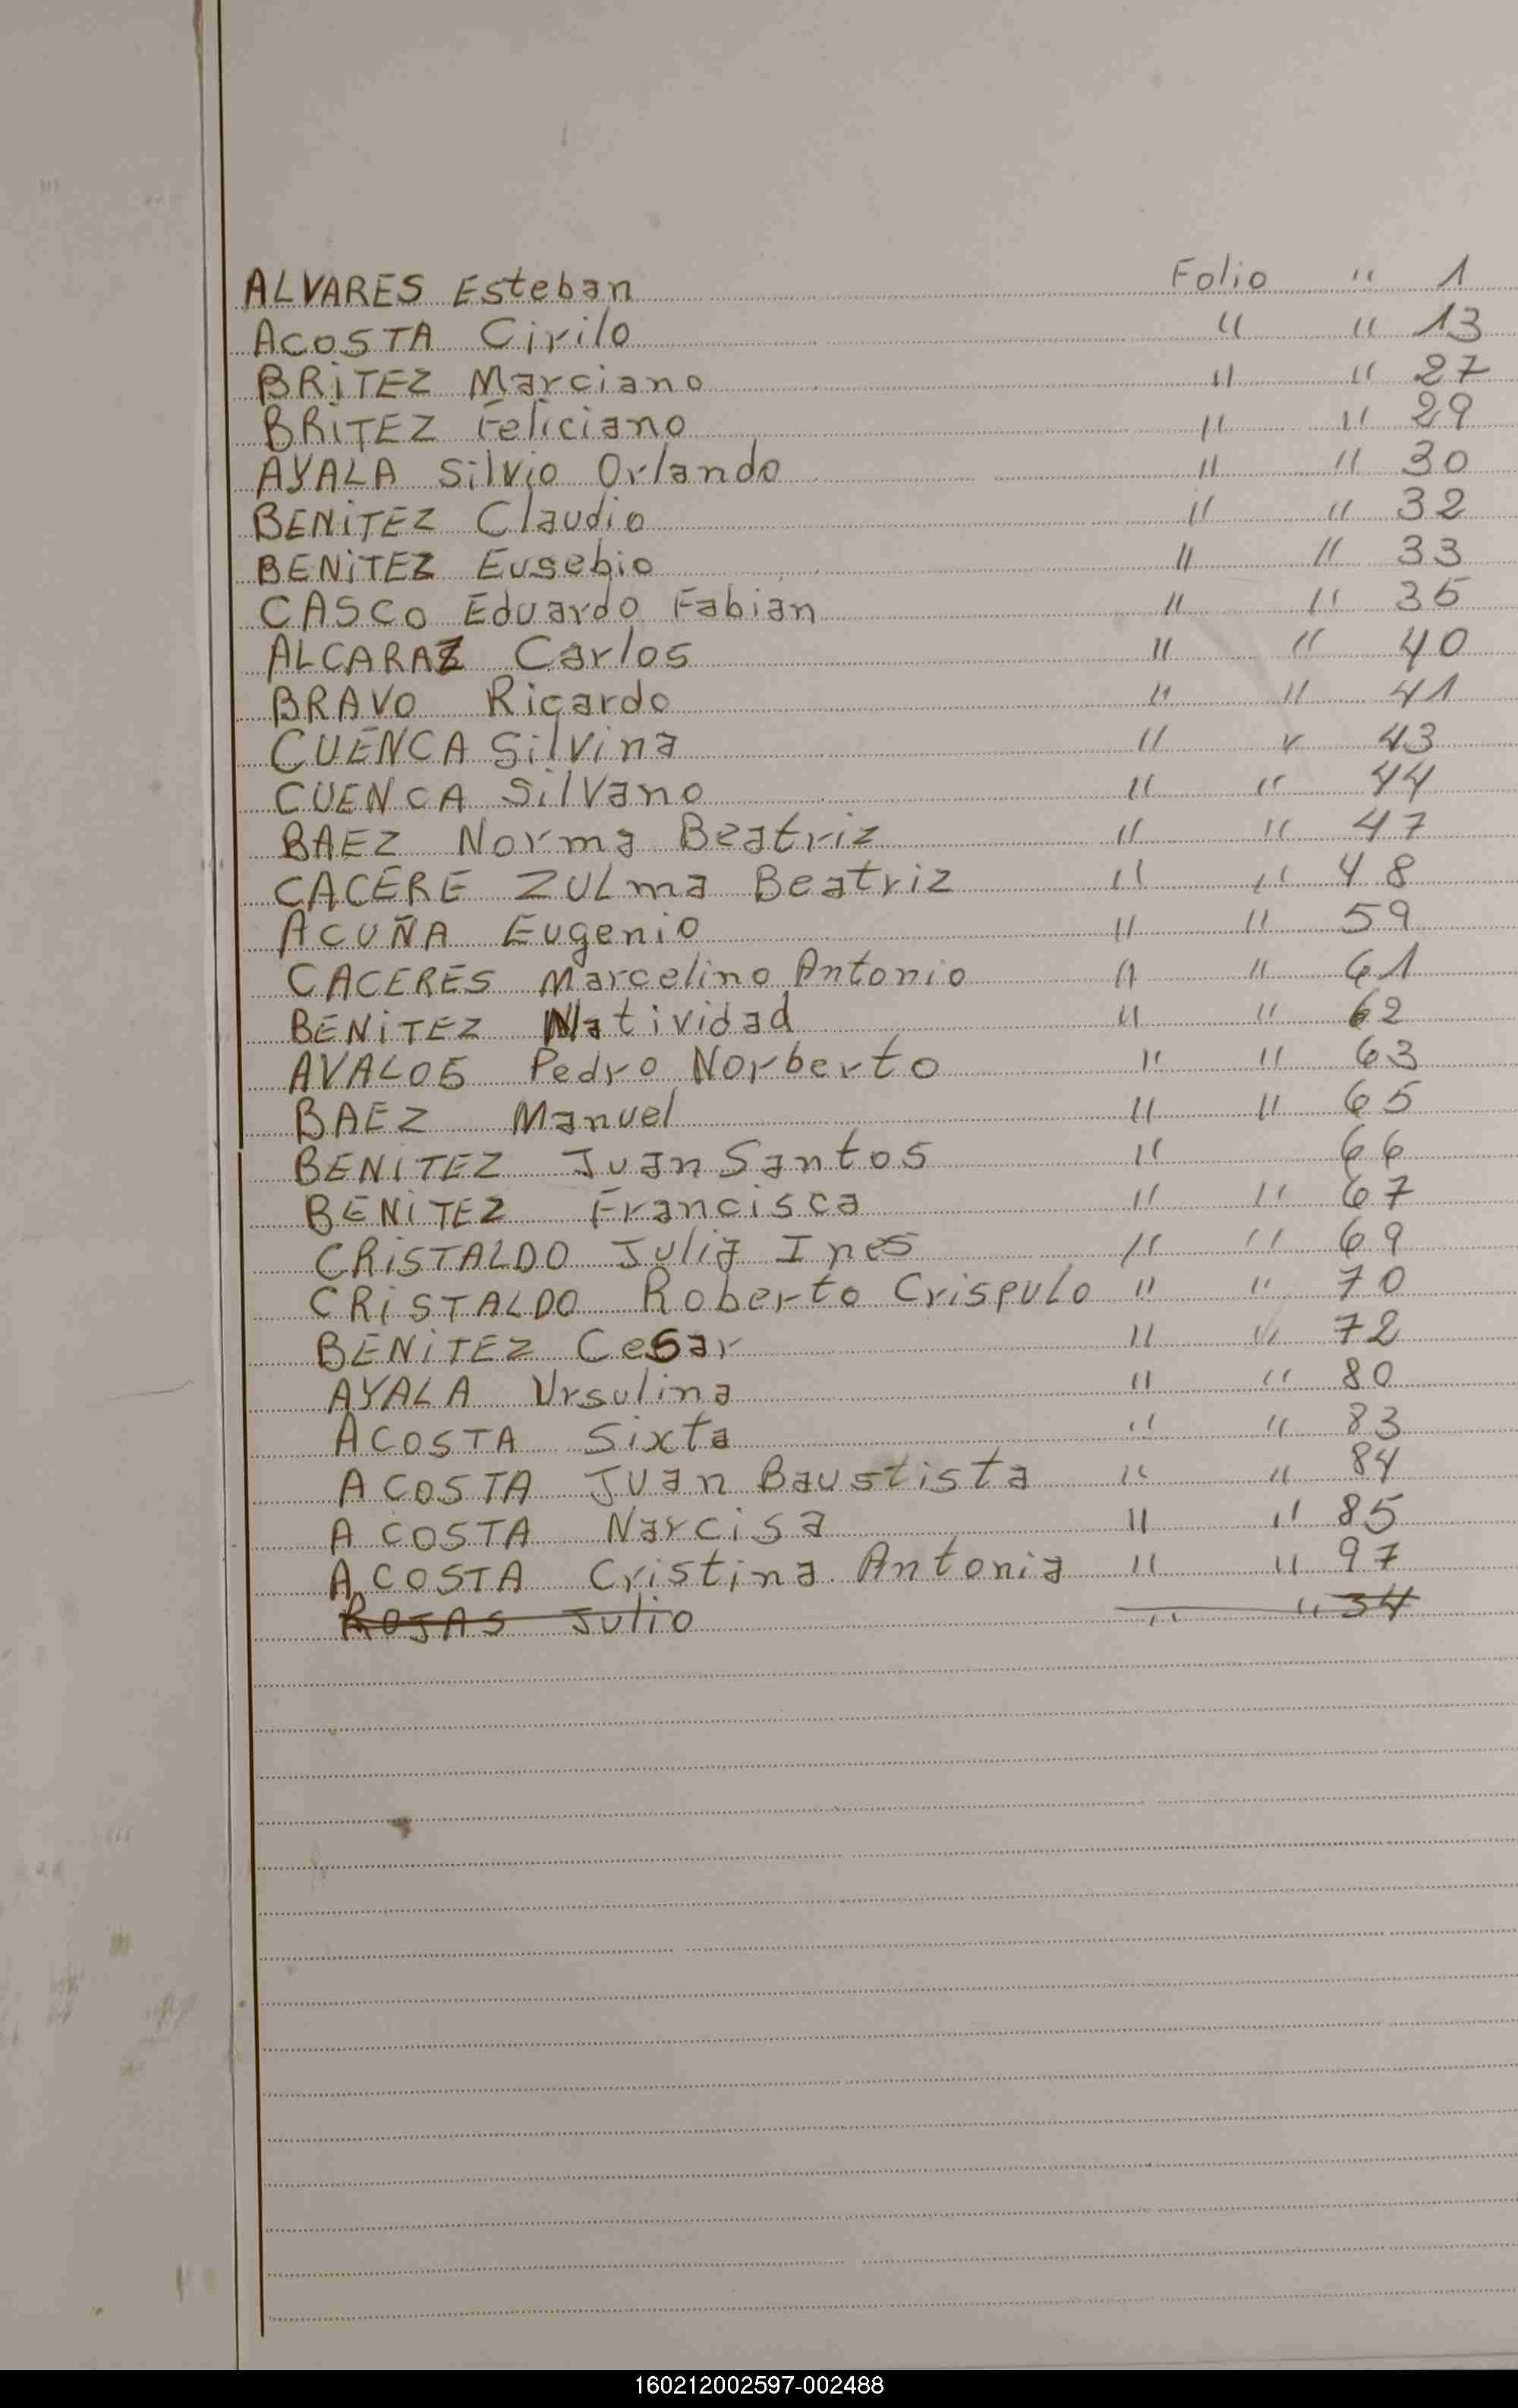 ALVARES Esteban Folio " 1
ACOSTA Cirilo " " 13
BRiTEZ Marciano " " 27
BRiTEZ Feliciano " " 29
AYALA Silvio Orlando " " 30
BENiTEZ Claudio " " 32
BENiTEZ Eusebio " " 33
CASCO Eduardo Fabian " " 35
ALCARAZ Carlos " " 40
BRAVO Ricardo " " 41
CUENCA Silvina " " 43
CUENCA Silvano " " 44
BAEZ Norma Beatriz " " 47
CACERE ZULma Beatriz " " 48
ACUÑA Eugenio " " 59
CACERES Marcelino Antonio " " 61
BENiTEZ Natividad " " 62
AVALOS Pedro Norberto " " 63
BAEZ Manuel " " 65
BENITEZ Juan Santos " 66
BENiTEZ Francisca " " 67
CRiSTALDO Julia Ines " " 69
CRiSTALDO Roberto Crispulo " " 70
BENiTEZ Cesar " " 72
AYALA Ursulina " " 80
ACOSTA Sixta " " 83
ACOSTA Juan Baustista " " 84
ACOSTA Narcisa " " 85
ACOSTA Cristina Antonia " " 97
ROJAS Julio " " 34
160212002597-002488